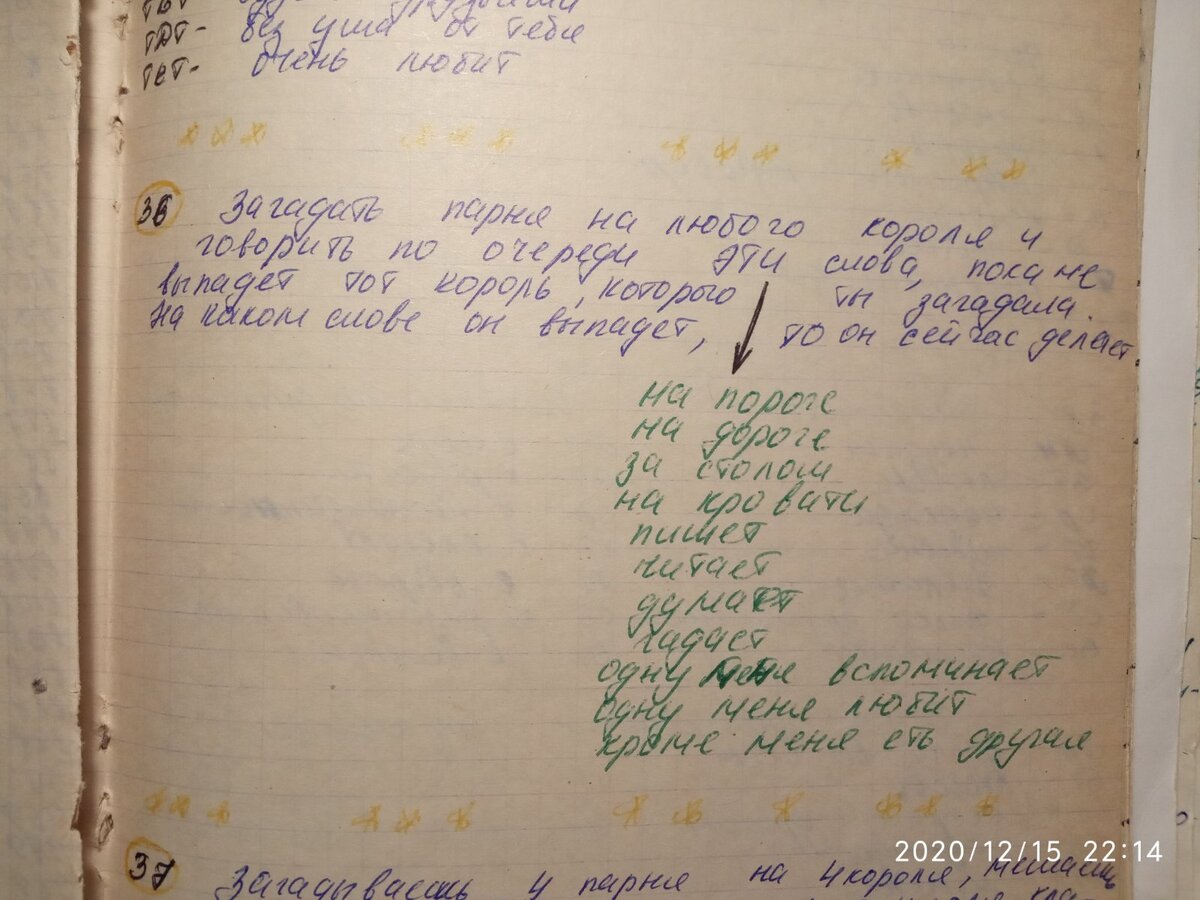 ТДТ- без ума от тебя
ТЕТ- очень любит
36 Загадать парня на любого короля и
говорить по очереди эти слова, пока не
выпадет тот король, которого ты загадала.
На каком слове он выпадет, то он сейчас делает
на пороге
на дороге
за столом
на кровати
пишет
читает
думает
гадает
одну меня вспоминает
одну меня любит
кроме меня еть другая
2020/12/15 22:14
37 Загадываешь 4 парня на 4 короля, мешаешь